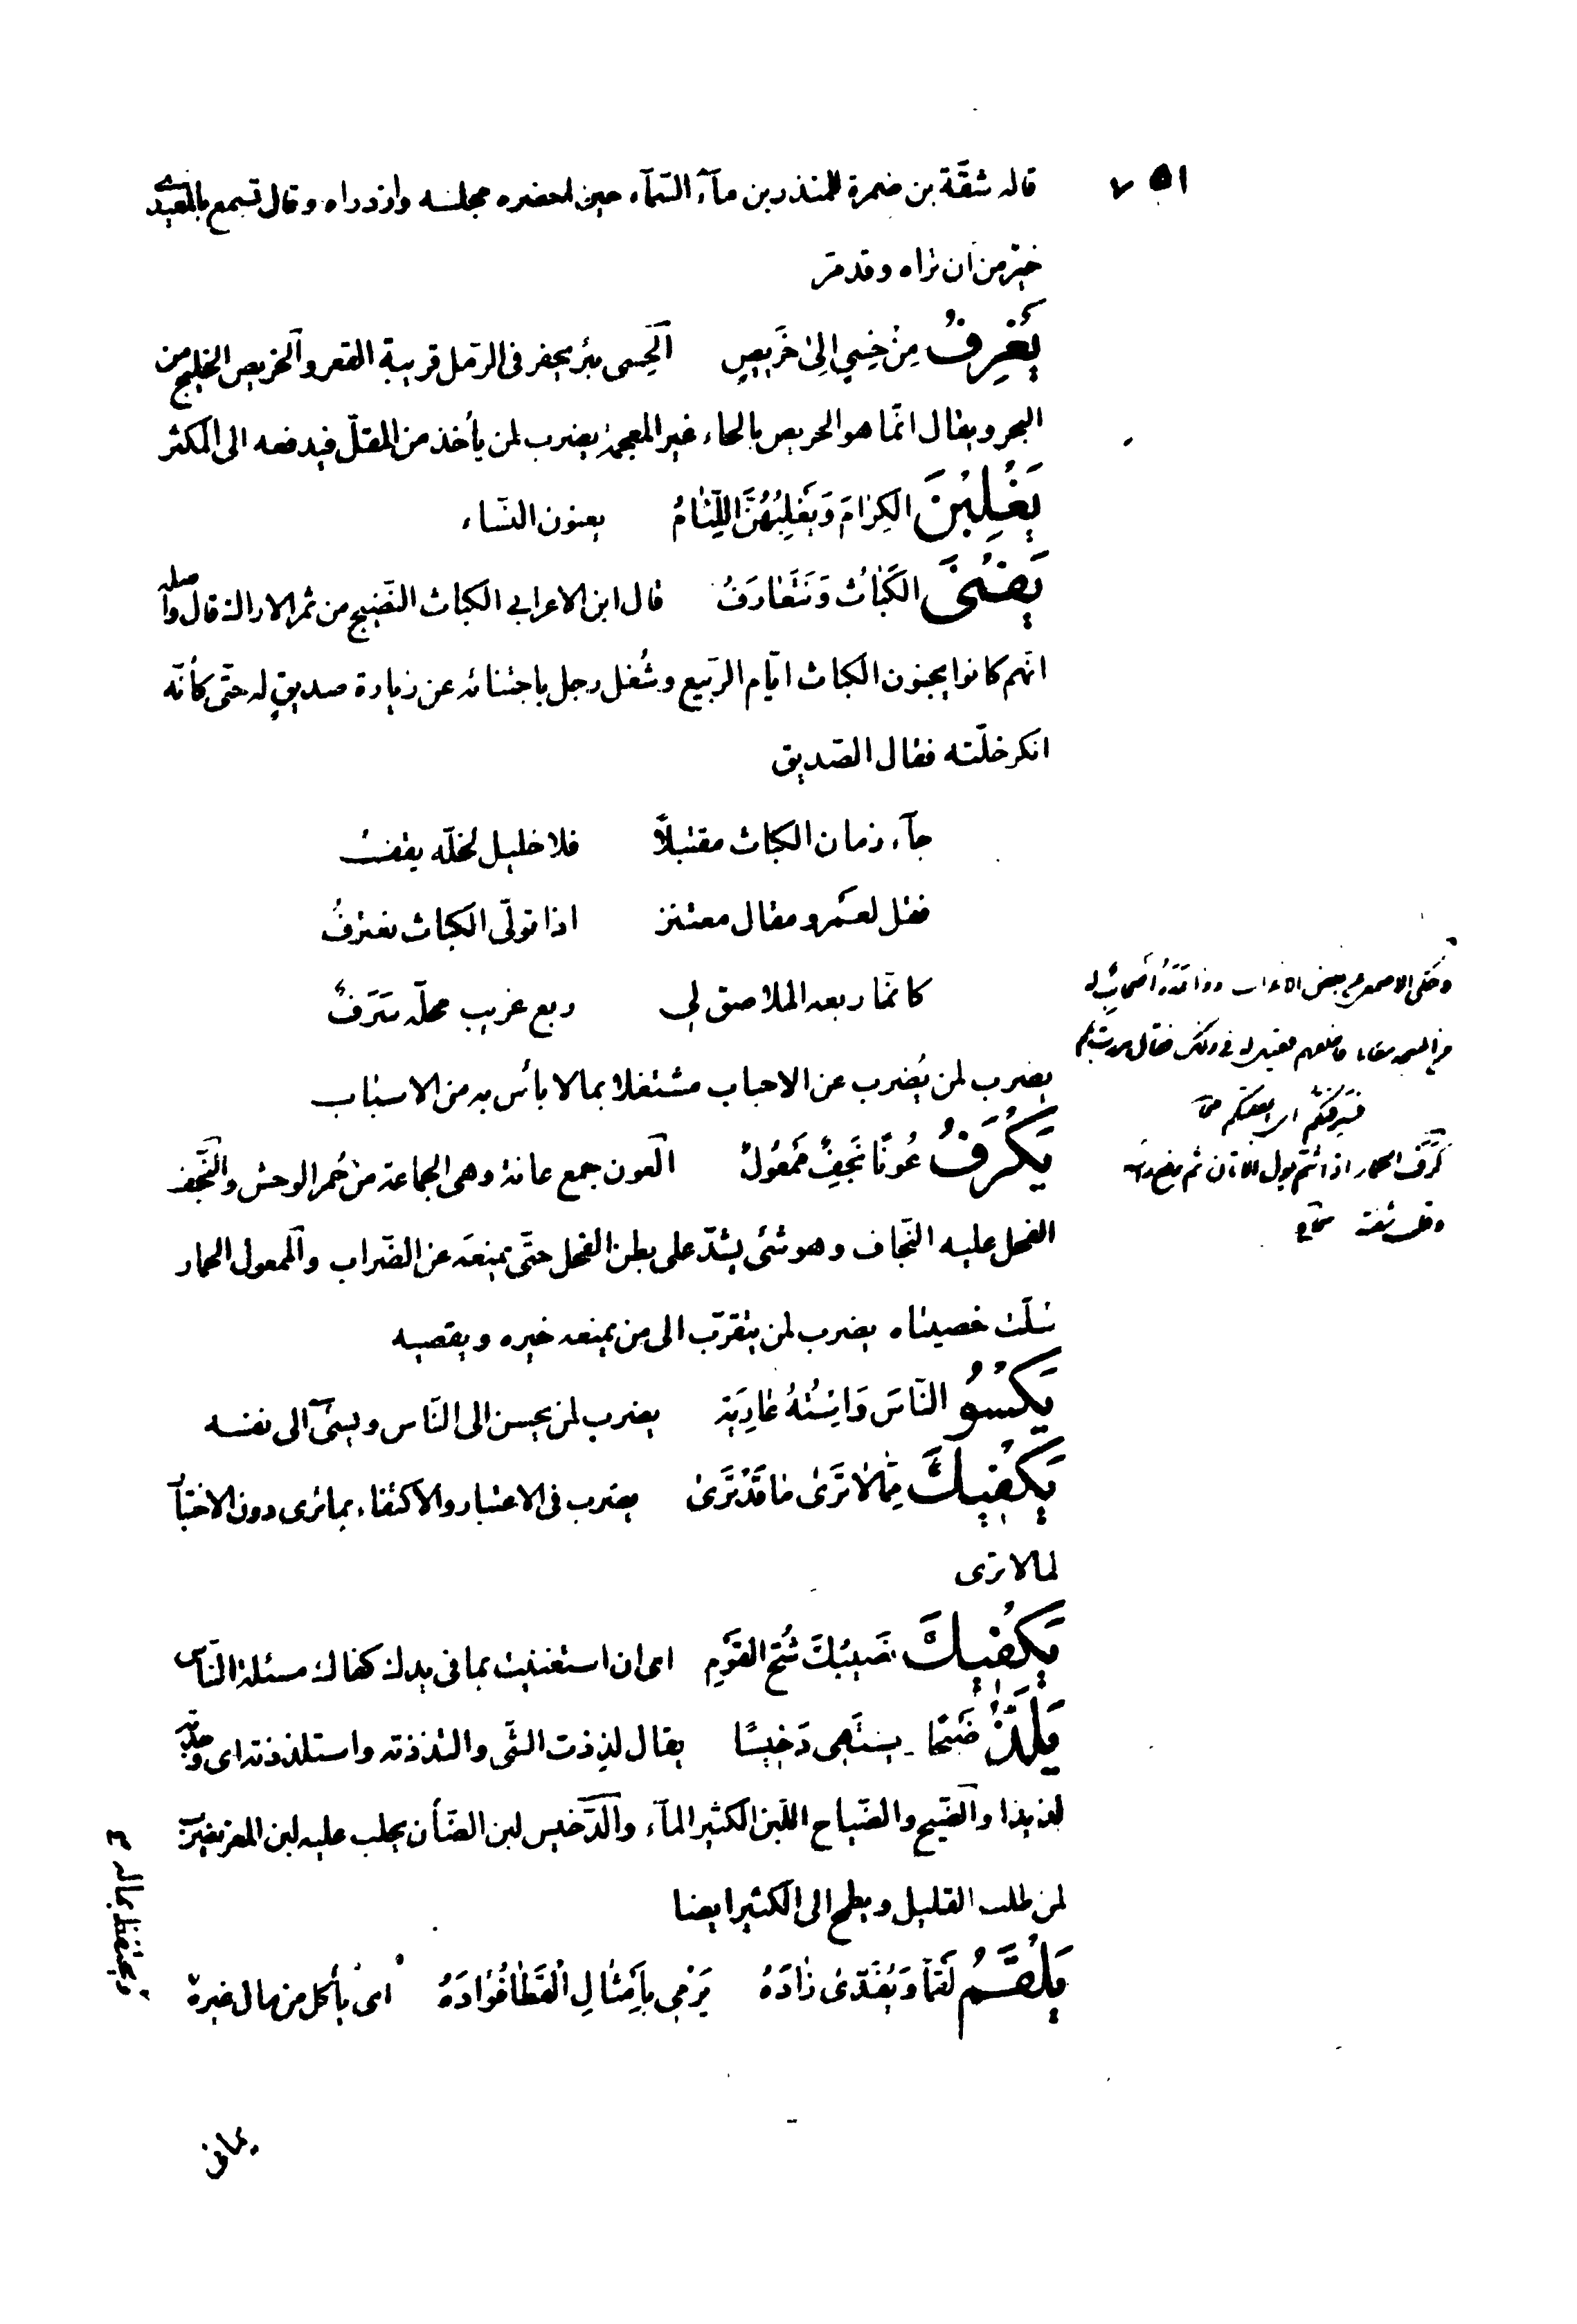 ٧٥١
قاله شقّة بن ضمرة للمنذر بن مآء السّمآء حين احضره مجلسه وازدراه وقال تسمع بالمعيدى
خير من ان تراه وقد مرّ
يَغْرِفُ مِنْ حِسْيٍ اِلىٰ خَرِيصٍ اَلحِسى بئر يحفر فى الرّمل قريبة القعر والخريص الخليج من
البحر ويقال انّما هو الحريص بالحاء غير المعجمة يضرب لمن يأخذ من المقلّ فيدفعه الى المكثر
يَغْلِبْنَ الكِرٰامَ وَيَغْلِبُهُنَّ اللِّئٰامُ يعنون النّساء
يَضْنىَ الكَبٰاثُ وَنَتَعٰارَفُ قال ابن الاعرابى الكباث النّضيج من ثمر الاراك قال واصله
انّهم كانوا يجنون الكباث ايّام الرّبيع وشُغل رجل باجتنائه عن زيارة صديقٍ له حتّى كأنّه
انكر خلّته فقال الصّديق
جآء زمان الكباث مقتبلًا فلا خليل لخلّه يقف
فقل لعَمرو مقال معتنز اذا تولّى الكباث نعترفُ
كانّما ربعه الملاصق لى ربع غريب محلّه سَرَفُ
يضرب لمن يُضرب عن الاحباب مشتغلا بمالا بأس به من الاسباب
يَكْرُفُ عُونًا نَجِفٌ مَمْعُولٌ اَلعون جمع عانة وهى الجماعة من حُمر الوحش والنّجف
الفحل عليه النّجاف وهو شئ يشدّ على بطن الفحل حتّى يمنعَه عن الضّراب والممعول الحمار
سُلّت خصيتاه يضرب لمن يتقرّب الى من يمنعه خيره ويقصيه
يَكْسُو النّاسَ وَاسْتُهُ عٰارِيَة يضرب لمن يحسن الى النّاس ويسىٓء الى نفسه
يَكْفِيكَ مِمّٰا لٰا تَرىٰ مٰا قَدْ تَرىٰ يضرب فى الاعتبار والاكتفاء بما ترى دون الاختبا
لما لا ترى
يَكْفِيكَ نَصِيبُكَ شُحَّ القَوْمِ اى ان استغنيت بما فى يدك كفاك مسئلة النّاس
يَلْتَذُّ ضَيْحًا يشتَهى دَخِيسًا يقال لذِذت الشّى والتذذته واستلذذته اى وجدته
لذيذا والضّيح والضّياح اللّبن الكثير المآء والدّخيس لبن الضّأن يحلب عليه لبن المعز يضرب
لمن طلب القليل ويطمح الى الكثير ايضا
يَلْقَمُ لَقْمًا وَيُفَدّىٰ زٰادَهُ يَرْمى بِاَمْثٰالِ الْقَطٰا فُؤٰادَهُ اى يأكل من مال غيره
ويحتفظ بماله ٤
وحكى الاصمعى بعض
كَرَف الحمار اذا شمّ بول الاتان ثم رفع رأسه
وقلب شفته صحاح
يمانى